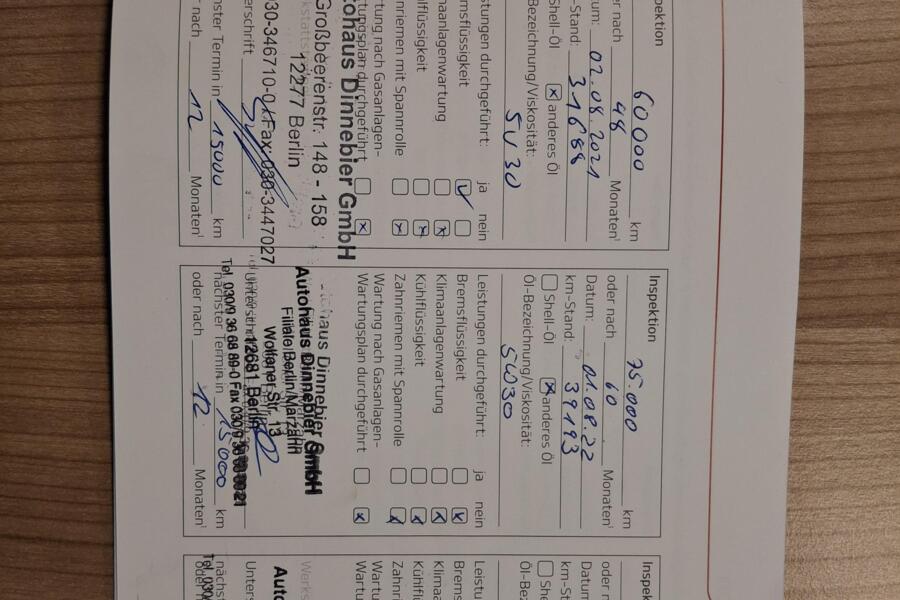 nspektion
60000 km
er nach 48 Monaten¹
tum: 02.08.2021
-Stand: 31688
Shell-Öl x anderes Öl
Bezeichnung/Viskosität:
5W30
stungen durchgeführt: ja nein
emsflüssigkeit
maanlagenwartung
hlflüssigkeit
hnriemen mit Spannrolle
rtung nach Gasanlagen-
tungsplan durchgeführt
tohaus Dinnebier GmbH
Großbeerenstr. 148 - 158
12277 Berlin
030-346710-0 Fax: 030-3447027
erschrift
hster Termin in 15000 km
r nach 12 Monaten¹
Inspektion
75.000 km
oder nach 60 Monaten¹
Datum: 01.08.22
km-Stand: 39193
Shell-Öl x anderes Öl
Öl-Bezeichnung/Viskosität:
5W30
Leistungen durchgeführt: ja nein
Bremsflüssigkeit x
Klimaanlagenwartung x
Kühlflüssigkeit x
Zahnriemen mit Spannrolle x
Wartung nach Gasanlagen-
Wartungsplan durchgeführt x
Autohaus Dinnebier GmbH
Filiale Berlin/Marzahn
12681 Berlin
nächster Termin in 15000 km
oder nach 12 Monaten¹
Inspek
oder n
Datum
km-St
Shel
Öl-Be
Leistu
Brems
Klima
Kühlfl
Zahnri
Wartu
Wartu
Werks
Auto
Unters
nächst
Tel. 030/